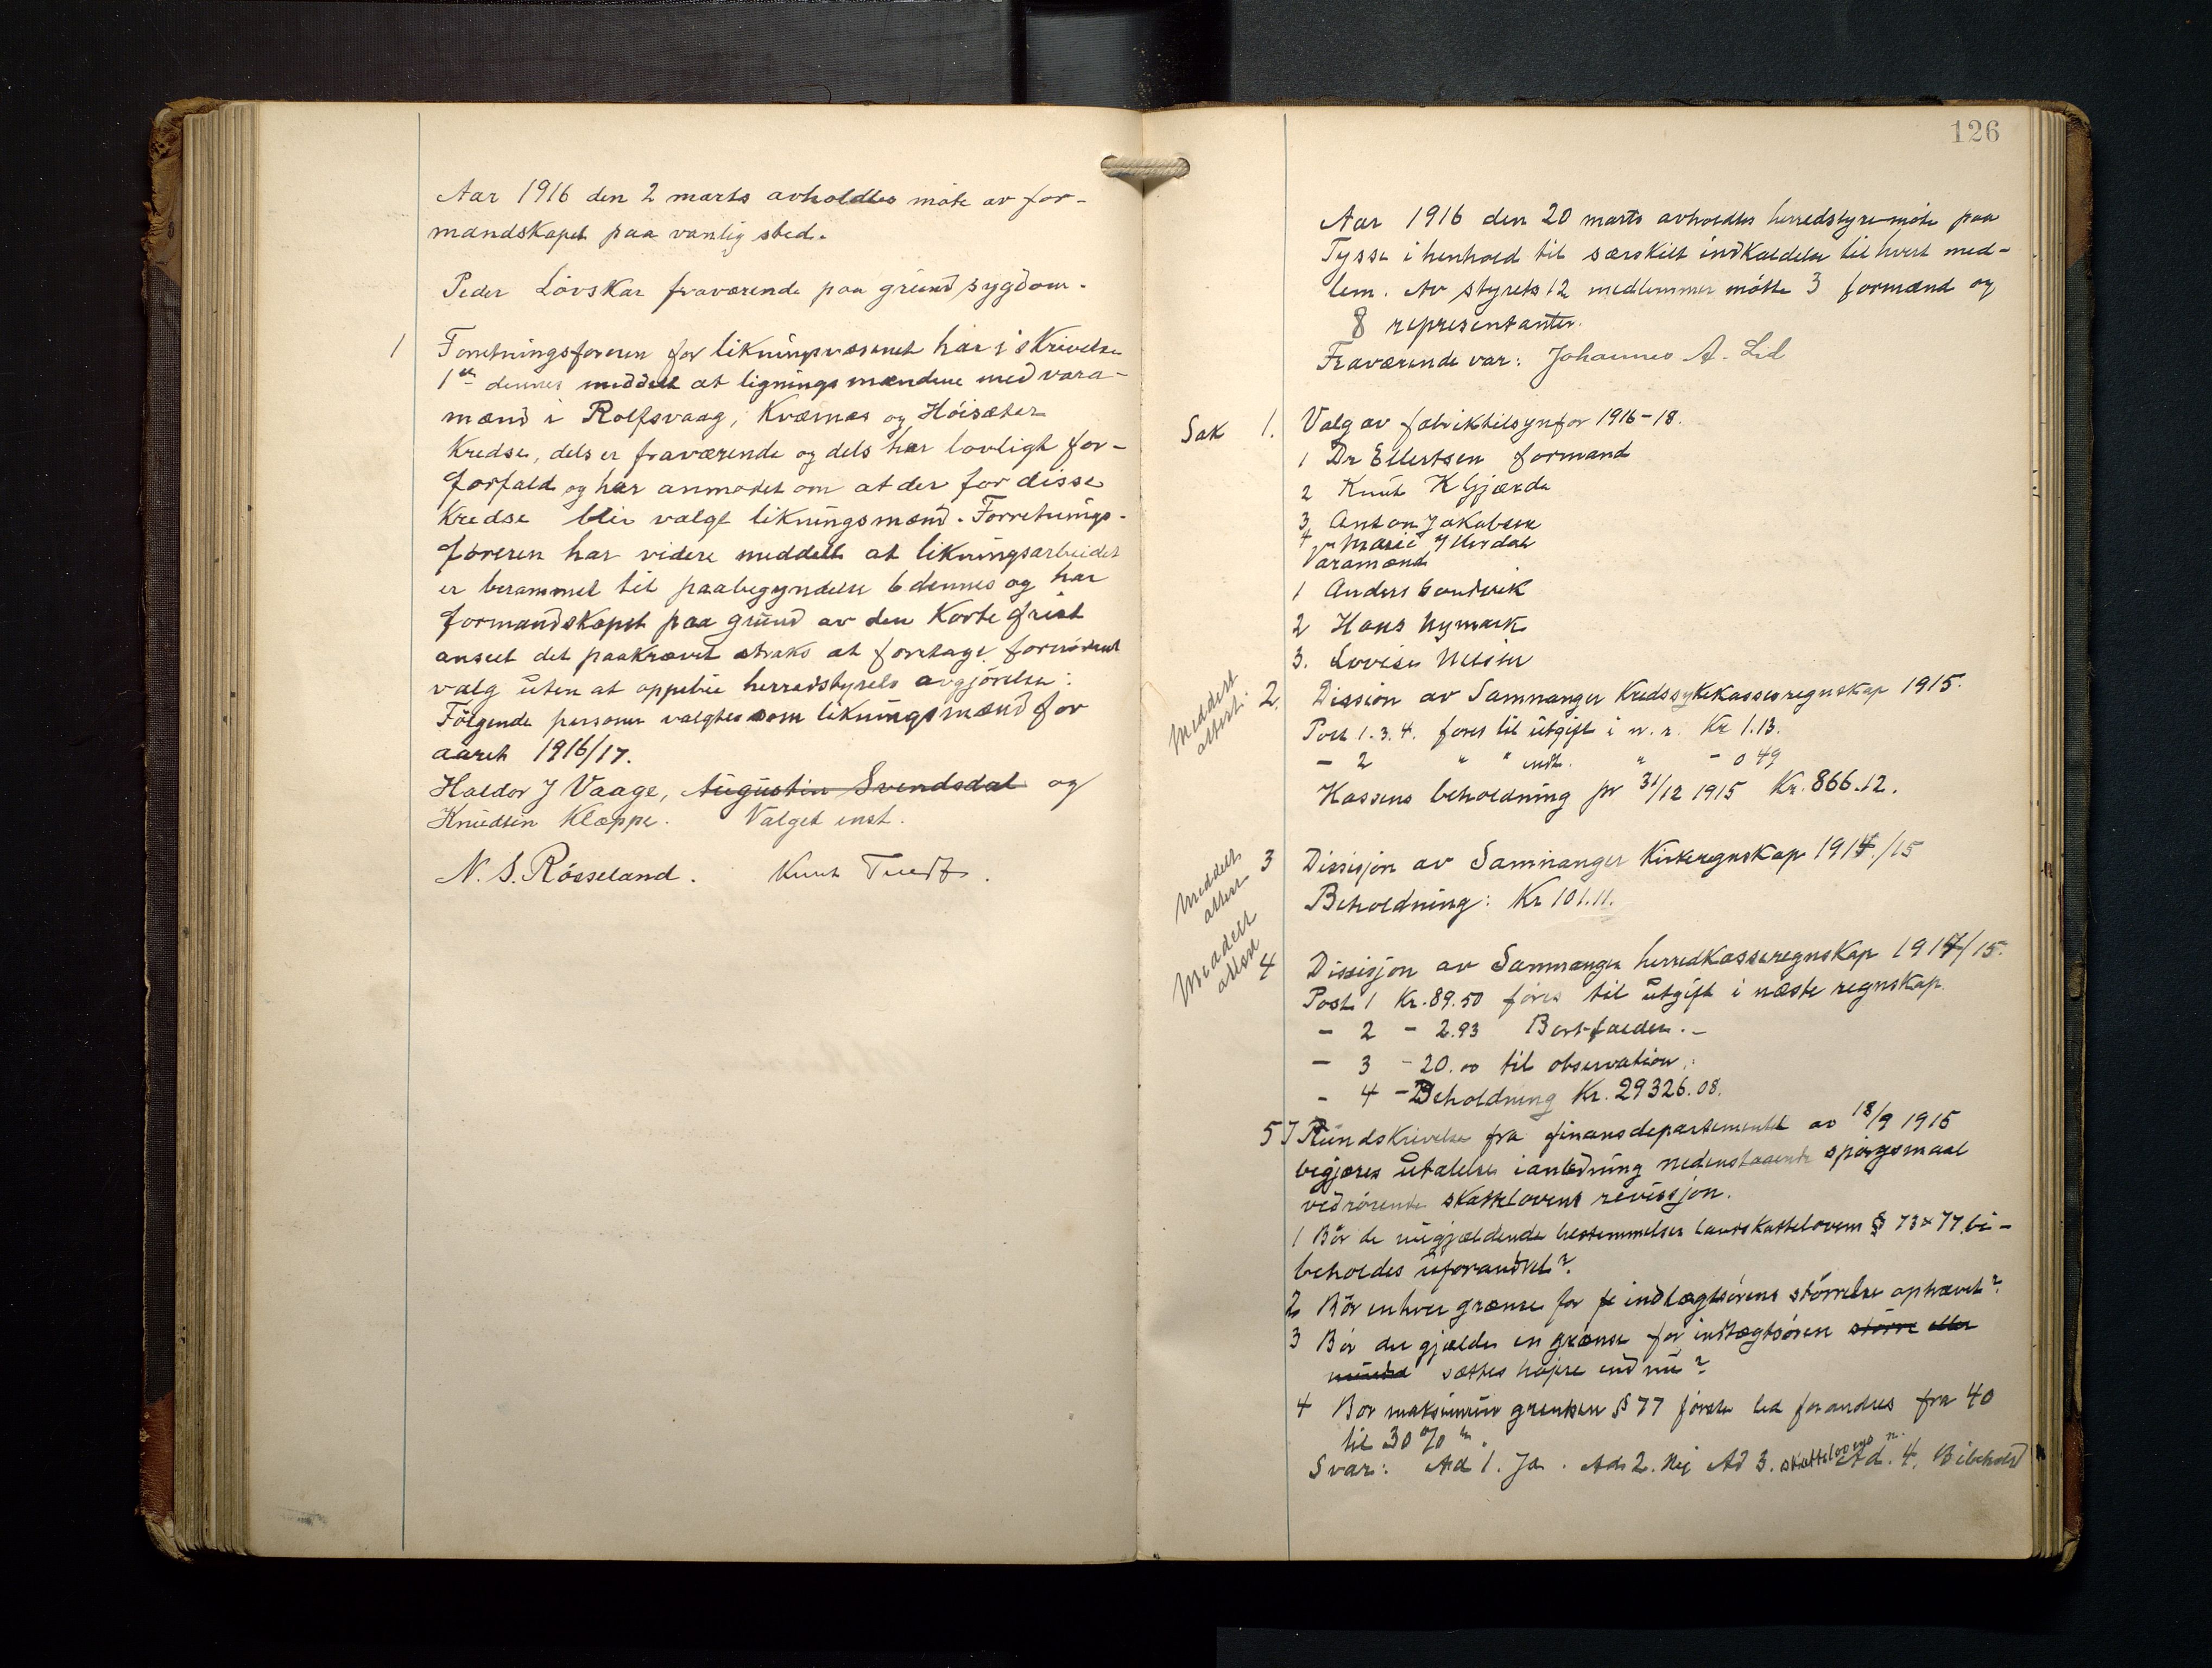 Aar 1916 den 2 marts avholdtes möte av for-
mandskapet paa vanlig sted.
Peder Lövskar fraværende paa grund sygdom.
1 Forretningsföreren for likningsvæsenet har i skrivelse
1ste dennes meddelt at ligningsmændene med vara-
mænd i Rolfsvaag, Kværnes og Höisæter
Kredse, dels er fraværende og dels har lovligt for-
forfald og har anmodet om at der for disse
Kredse blir valgt likningsmænd. Forretnings-
föreren har videre meddelt at likningsarbeidet
er berammet til paabegyndelse 6 dennes og har
formandskapet paa grund av den Korte frist
anseet det paakrævet straks at foretage fornödent
valg uten at oppebie herredstyrets avgjörelse:
Fölgende personer valgtes som likningsmænd for
aaret 1916/17.
Haldor J Vaage, Augustin Svendsdal og
Knudsen Klæppe. Valget enst.
N. S. Rösseland. Knut Tvedt.
126
Aar 1916 den 20 marts avholdtes herredstyremöte paa
Tysse i henhold til særskilt indkaldelse til hvert med-
lem. Av styrets 12 medlemmer mötte 3 formænd og
8 representanter.
Fraværende var: Johannes A. Lid
Sak 1. Valg av fabriktilsyn for 1916-18.
1 Dr Ellertsen formand
2 Knut K Gjærde
3 Anton Jakobsen
4 Marie
Varamænd
1 Anders
2 Hans Nymark
3. Lovise Nilsen
Meddelt
attest.
2. Dission av Samnanger Kredssykekasses regnskap 1915.
Post 1. 3. 4. föres til utgift i n. r. Kr 1.13.
- 2 " " indt. " - 0 49
Kassens beholdning pr 31/12 1915 Kr. 866.12.
Meddelt
attest
3 Dissisjon av Samnanger Kirkeregnskap 1914/15
Beholdning: Kr 101.11.
Meddelt
attest
4 Dissisjon av Samnanger herredkasseregnskap 1914/15.
Post 1 Kr. 89.50 föres til utgift i næste regnskap.
- 2 - 2.93 Bortfalder.-
- 3 - 20.00 til observation.
- 4 - Beholdning Kr. 29326.08.
5 I Rundskrivelse fra finansdepartementet av 18/9 1915
begjæres utalelse i anledning nedenstaaende spörgsmaal
vedrörende skattelovens revissjon.
1 Bör de nugjældende bestemmelser landskatteloven § 73 & 77 bi-
beholdes uforandret?
2 Bör enhver grænse for indtægtsörens störrelse ophævet?
3 Bör der gjælde en grænse for indtægtsören större eller
mindre sættes höjre end nu?
4 Bör maksimum grensen § 77 förste led forandres fra 40
til 30 %.
Svar: Ad 1. Ja. Ad. 2. Nej Ad 3. skattelovens n. Ad. 4. Bibehold